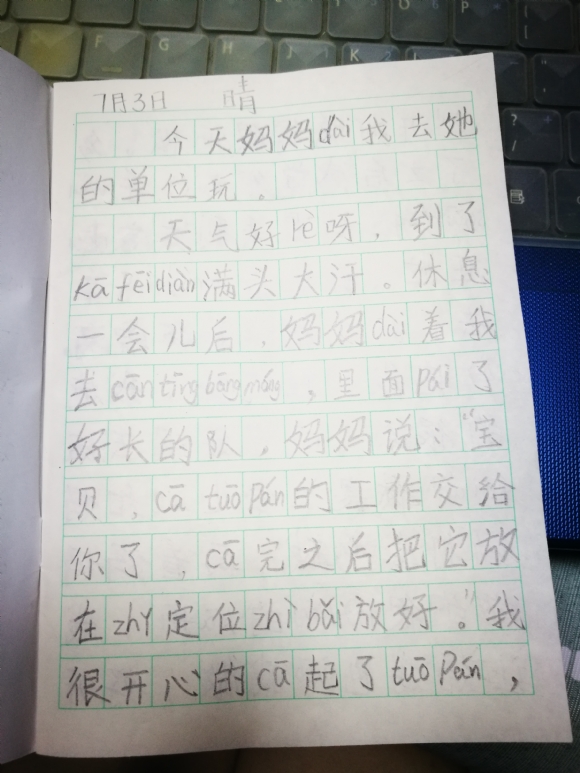 7月3日 晴
今天妈妈dài我去她
的单位玩。
天气好rè呀，到了
kā fēi diàn满头大汗。休息
一会儿后，妈妈dài着我
去cān tīng bāng máng，里面pái了
好长的队，妈妈说：“宝
贝，cā tuō pán的工作交给
你了，cā完之后把它放
在zhǐ定位zhì bǎi放好。”我
很开心的cā起了tuō pán，